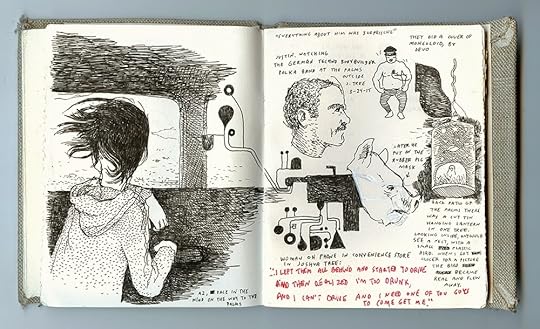 "EVERYTHING ABOUT HIM WAS SURPRISING"
JUSTIN, WATCHING
THE GERMAN TECHNO BODYBUILDER
POLKA BAND AT THE PALMS
OUTSIDE
J-TREE
THEY DID A COVER OF
MONGOLOID, BY
DEVO
LATER HE
PUT ON THE
RUBBER PIG
MASK
BACK PATIO OF
THE PALMS THERE
WAS A CUT TIN
HANGING LANTERN
IN ONE TREE.
LOOKING INSIDE, YOU COULD
SEE A NEST, WITH A
SMALL PLASTIC
BIRD. WHEN I GOT
CLOSER FOR A PICTURE
THE BIRD BECAME
REAL AND FLEW
AWAY.
WOMAN ON PHONE IN CONVENIENCE STORE
IN JOSHUA TREE:
"I LEFT THEM ALL BEHIND AND STARTED TO DRIVE
AND THEN REALIZED I'M TOO DRUNK,
AND I CAN'T DRIVE AND I NEED ONE OF YOU GUYS
TO COME GET ME."
FACE IN THE
WIND ON THE WAY TO THE
PALMS